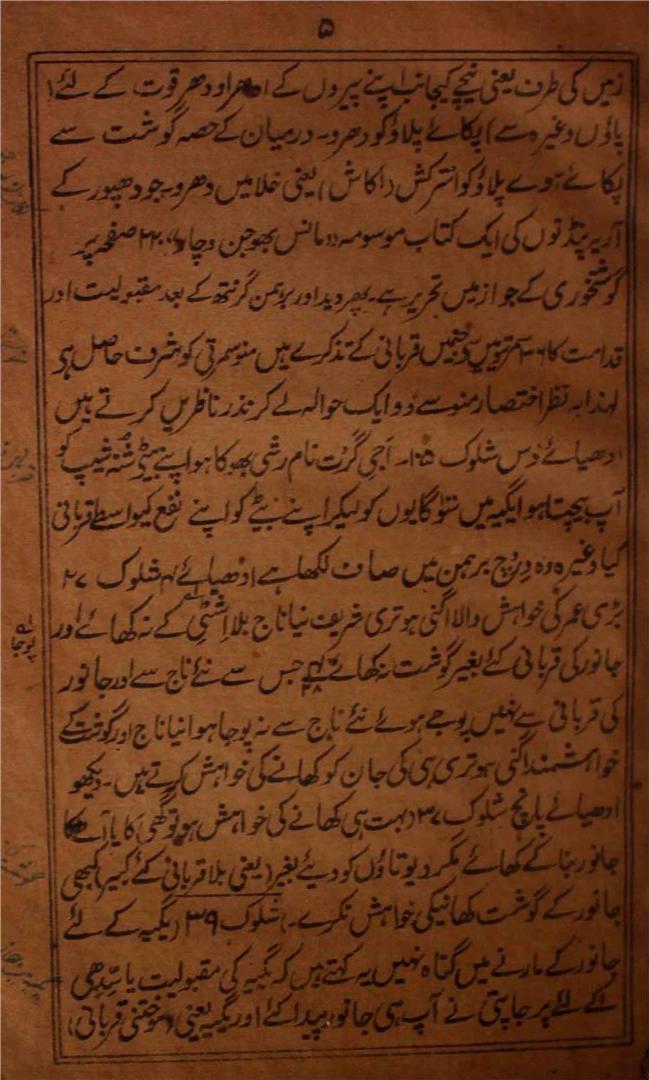 ۵
زمین کی طرف یعنی نیچے کیجانب اپنے پیروں کے ادھر اودھر قوت کے لئے (
پاؤں وغیرہ سے) پکائے پلاؤ کو دھرو۔ درمیان کے حصہ گوشت سے
پکائے ہوے پلاؤ کو انترکش (اکاش) یعنی خلا میں دھرو۔ جو دھپور کے
آریہ پنڈتوں کی ایک کتاب موسومہ "مانس بھوجن وچار" ۲۲۰ صفحہ پر
گوشتخوری کے جواز میں تحریر ہے۔ پھر وید اور برہمن گرنتھ کے بعد مقبولیت اور
قدامت کا ۳۶ سمرتیوں کو جنمیں قربانی کے تذکرے ہیں منوسمرتی کو شرف حاصل ہی
لہٰذا بہ نظر اختصار منو سے دو ایک حوالہ لے کر نذر ناظرین کرتے ہیں
ادھیائے دس شلوک ۱۰۵۔ اَجی گَرت نام رشی بھوکا ہوا اپنے بیٹے شُنہ شیپ کو
آپ بیچتا ہوا یگیہ میں سَو گایوں کو لیکر اپنے بیٹے کو اپنے نفع کیواسطے قربانی
کیا وغیرہ وہ رِچ برہمن میں صاف لکھا ہے ادھیائے ۴ شلوک ۲۷
بڑی عمر کی خواہش والا اگنی ہوتری شریف نیا ناج بلا اِشٹی کے نہ کھائے اور
جانور کی قربانی کئے بغیر گوشت نہ کھائے ۴/۲۸ جس سے نئے ناج سے اور جانور
کی قربانی سے نہیں پوجے ہوئے نئے ناج سے نہ پوجا ہوا نیا ناج اور گوشت کے
خواہشمند اگنی ہوتری ہی کی جان کو کھانے کی خواہش کرتے ہیں۔ دیکھو
ادھیائے پانچ شلوک ۳۷ (بہت ہی کھانے کی خواہش ہو تو گھی کا یا آٹے کا
جانور بنا کے کھائے مگر دیوتاؤں کو دیئے بغیر (یعنی بلا قربانی کئے کسی) کبھی
جانور کے گوشت کھانیکی خواہش نکرے۔) شلوک ۳۹ (یگیہ کے لئے
جانور کے مارنے میں گناہ نہیں یہ کہتے ہیں کہ یگیہ کی مقبولیت یا سِدّھی
کے لئے پرجاپتی نے آپ ہی جانور پیدا کئے اور یگیہ یعنی (سوختنی قربانی)